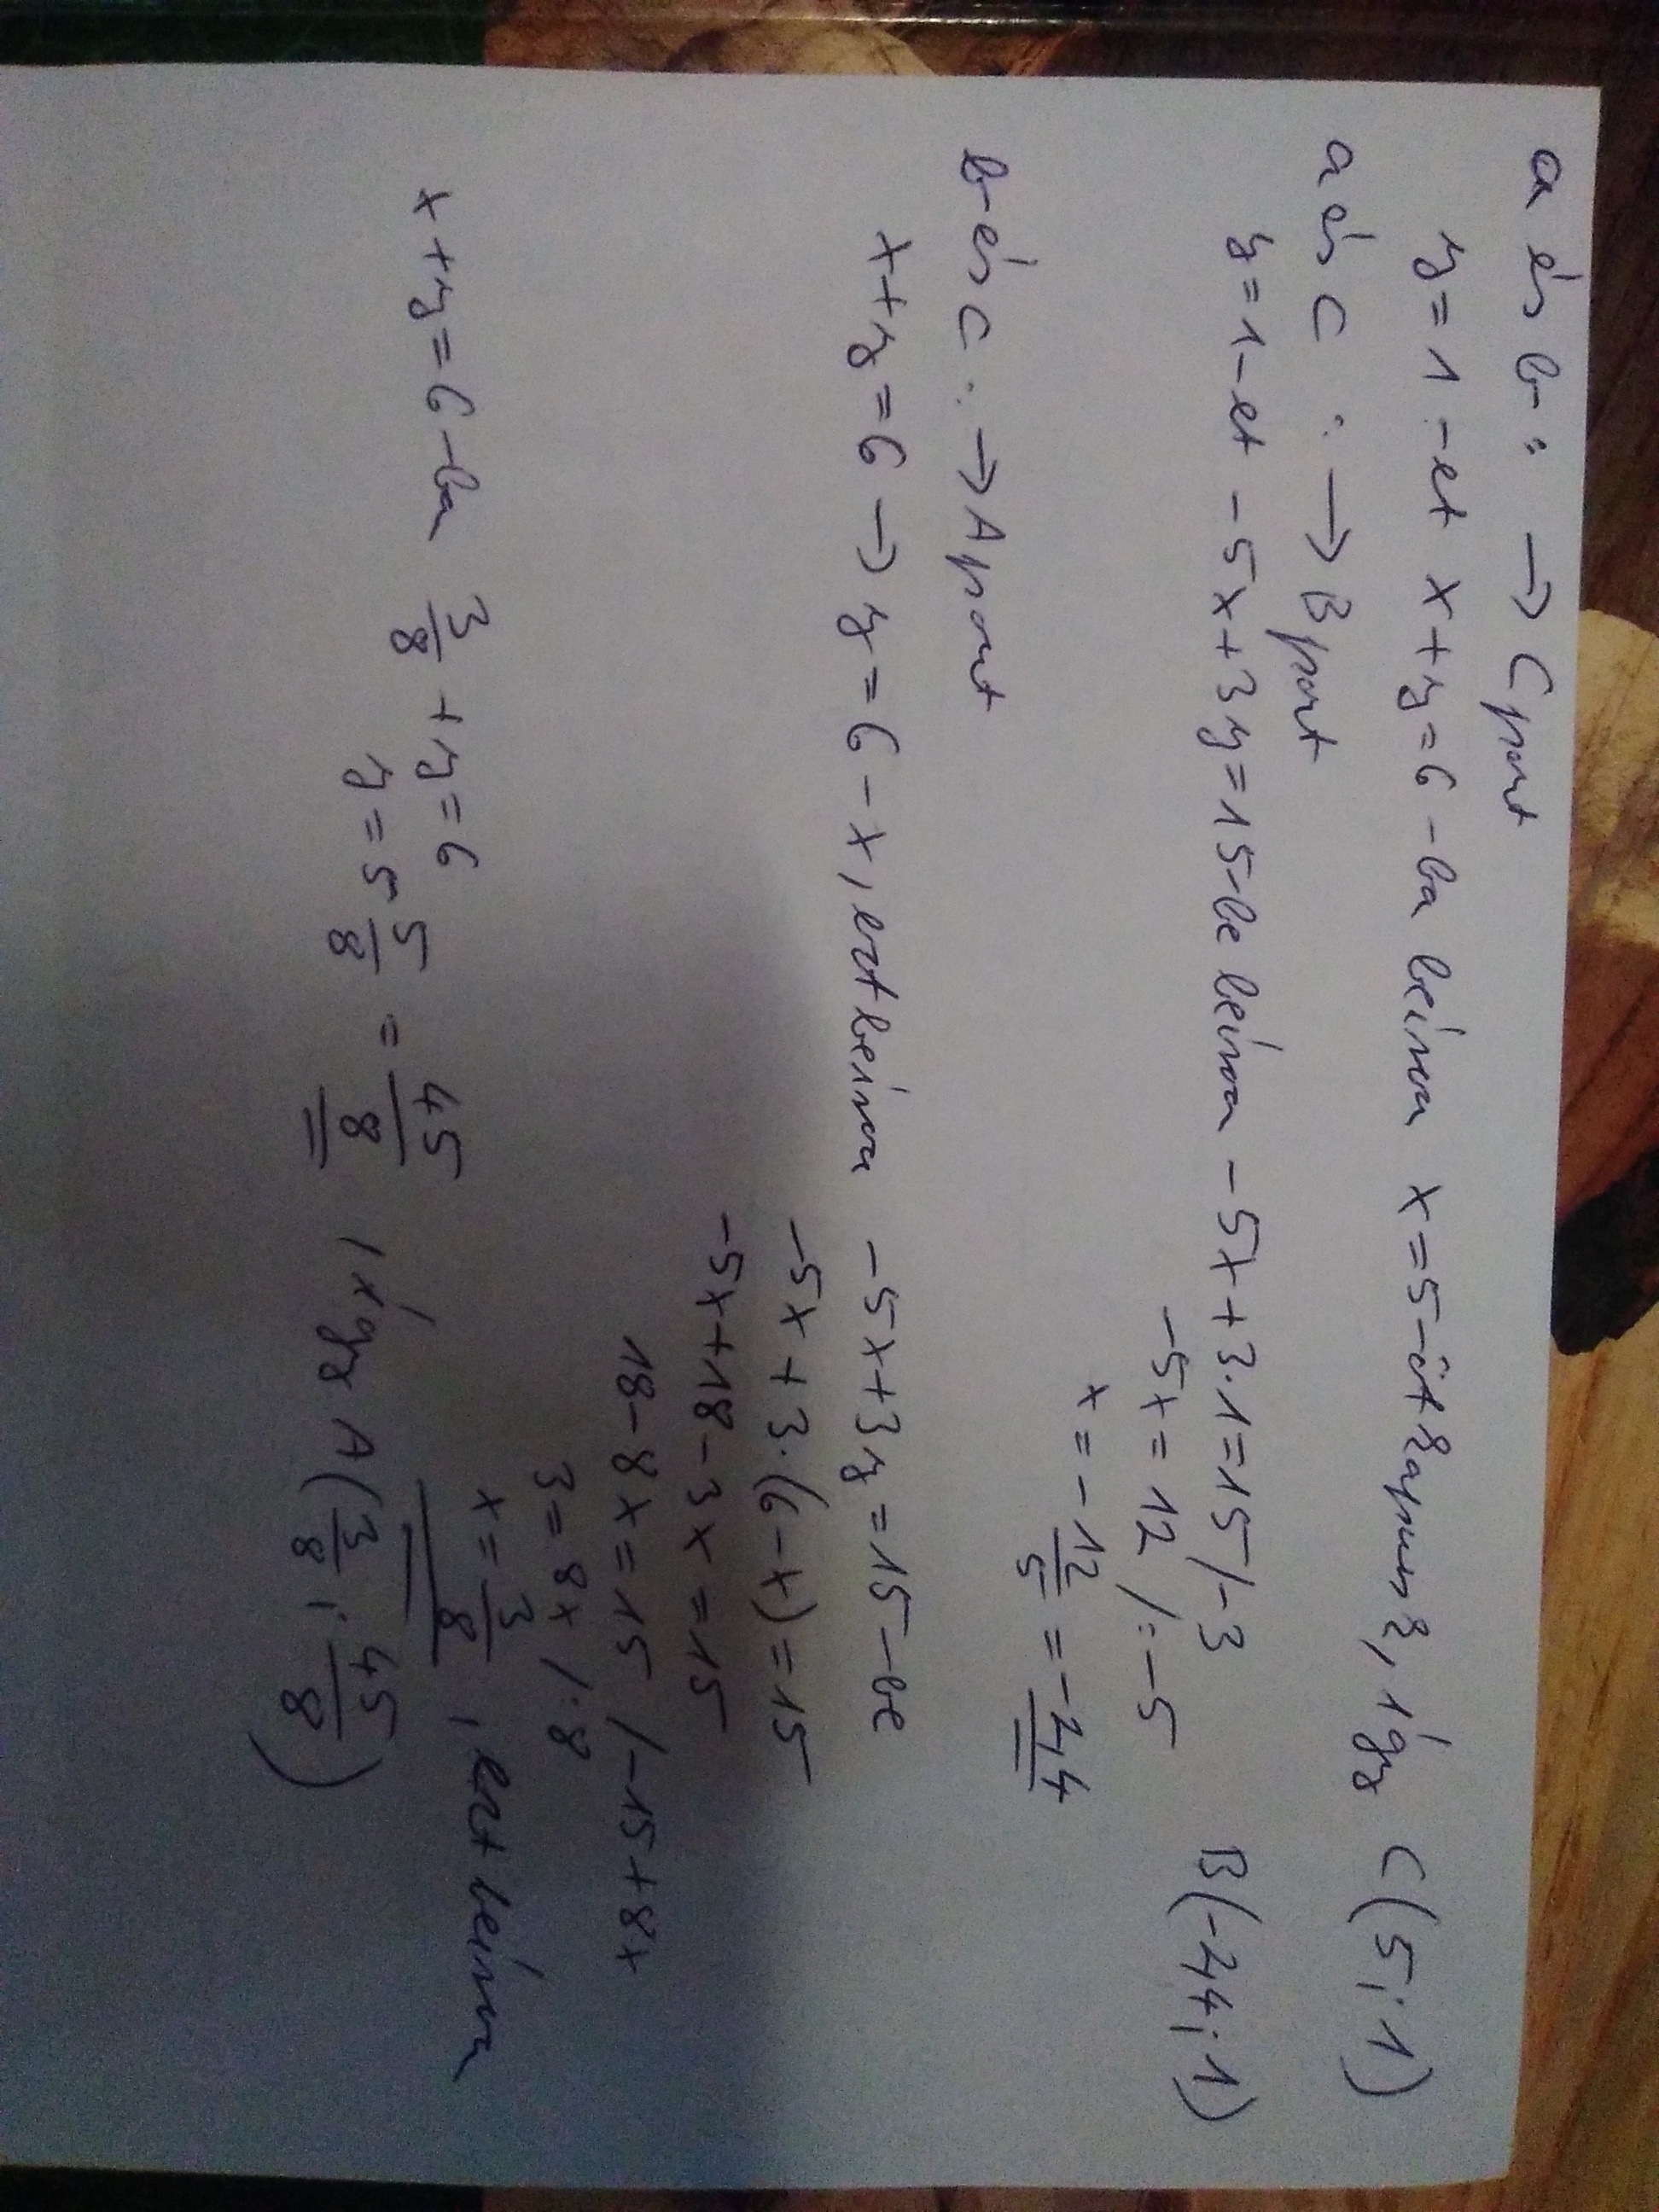 a és b: → C pont
y = 1 -et x+y=6 -ba beírva x=5-öt kapunk, így C(5;1)
a és c : → B pont
y=1-et -5x+3y=15-be beírva -5x+3·1=15 /-3 B(-2,4;1)
-5x = 12 /:-5
x = - 12/5 = -2,4
b és c : → A pont
x+y=6 → y=6-x, ezt beírva -5x+3y=15-be
-5x+3·(6-x)=15
-5x+18-3x=15
18-8x=15 /-15+8x
3=8x /:8
x = 3/8 , ezt beírva
x+y=6-ba 3/8 + y = 6
y = 5 5/8 = 45/8 , így A(3/8 ; 45/8)